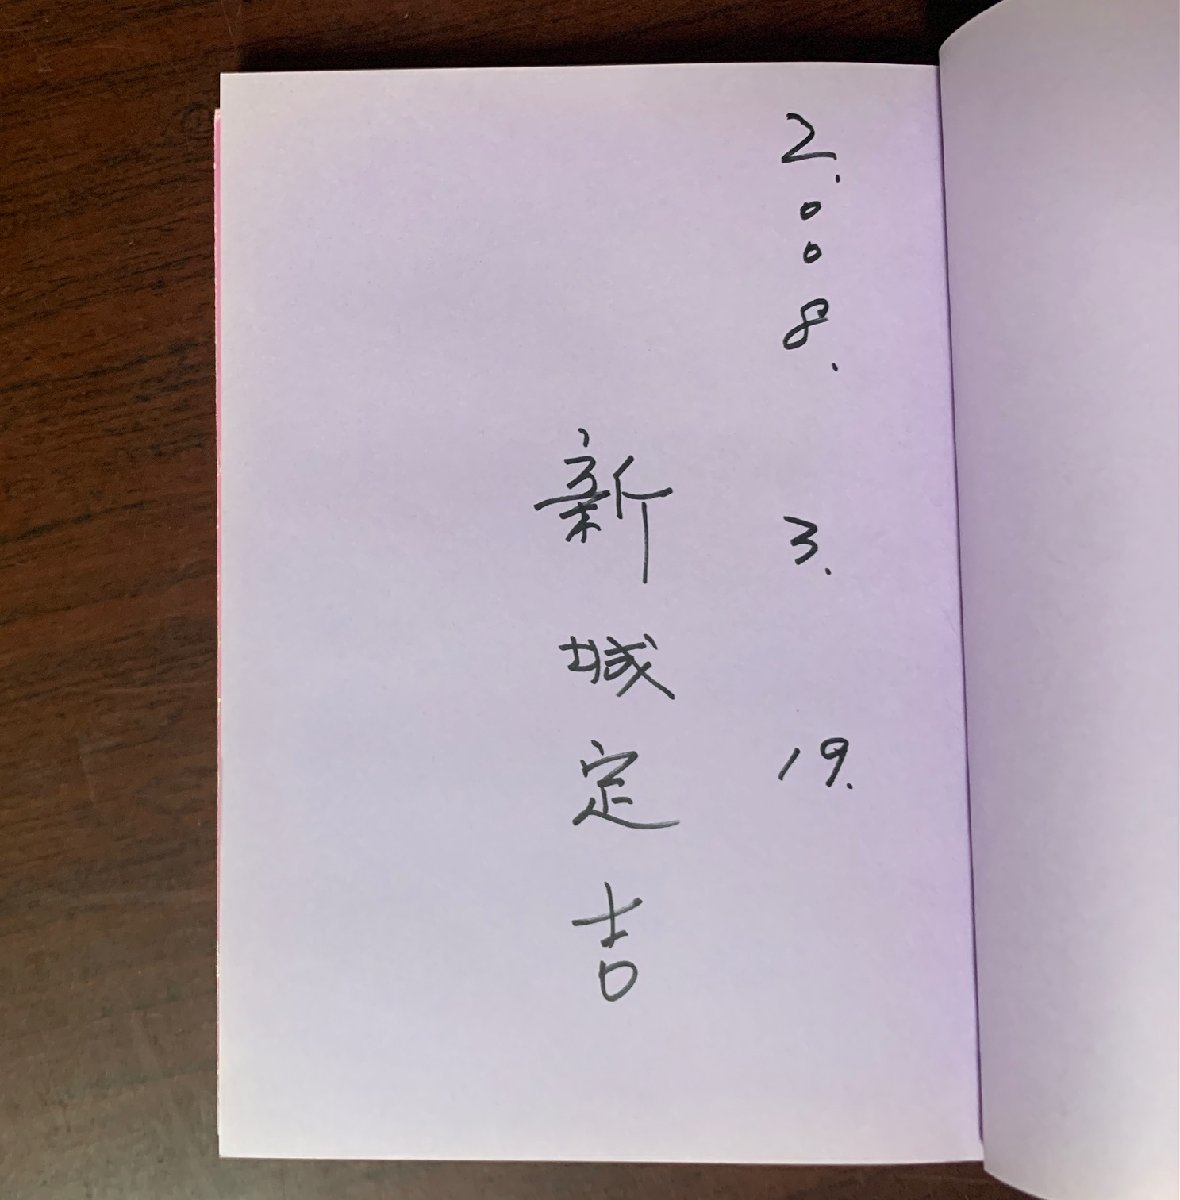 2.008. 3. 19.
新城定吉